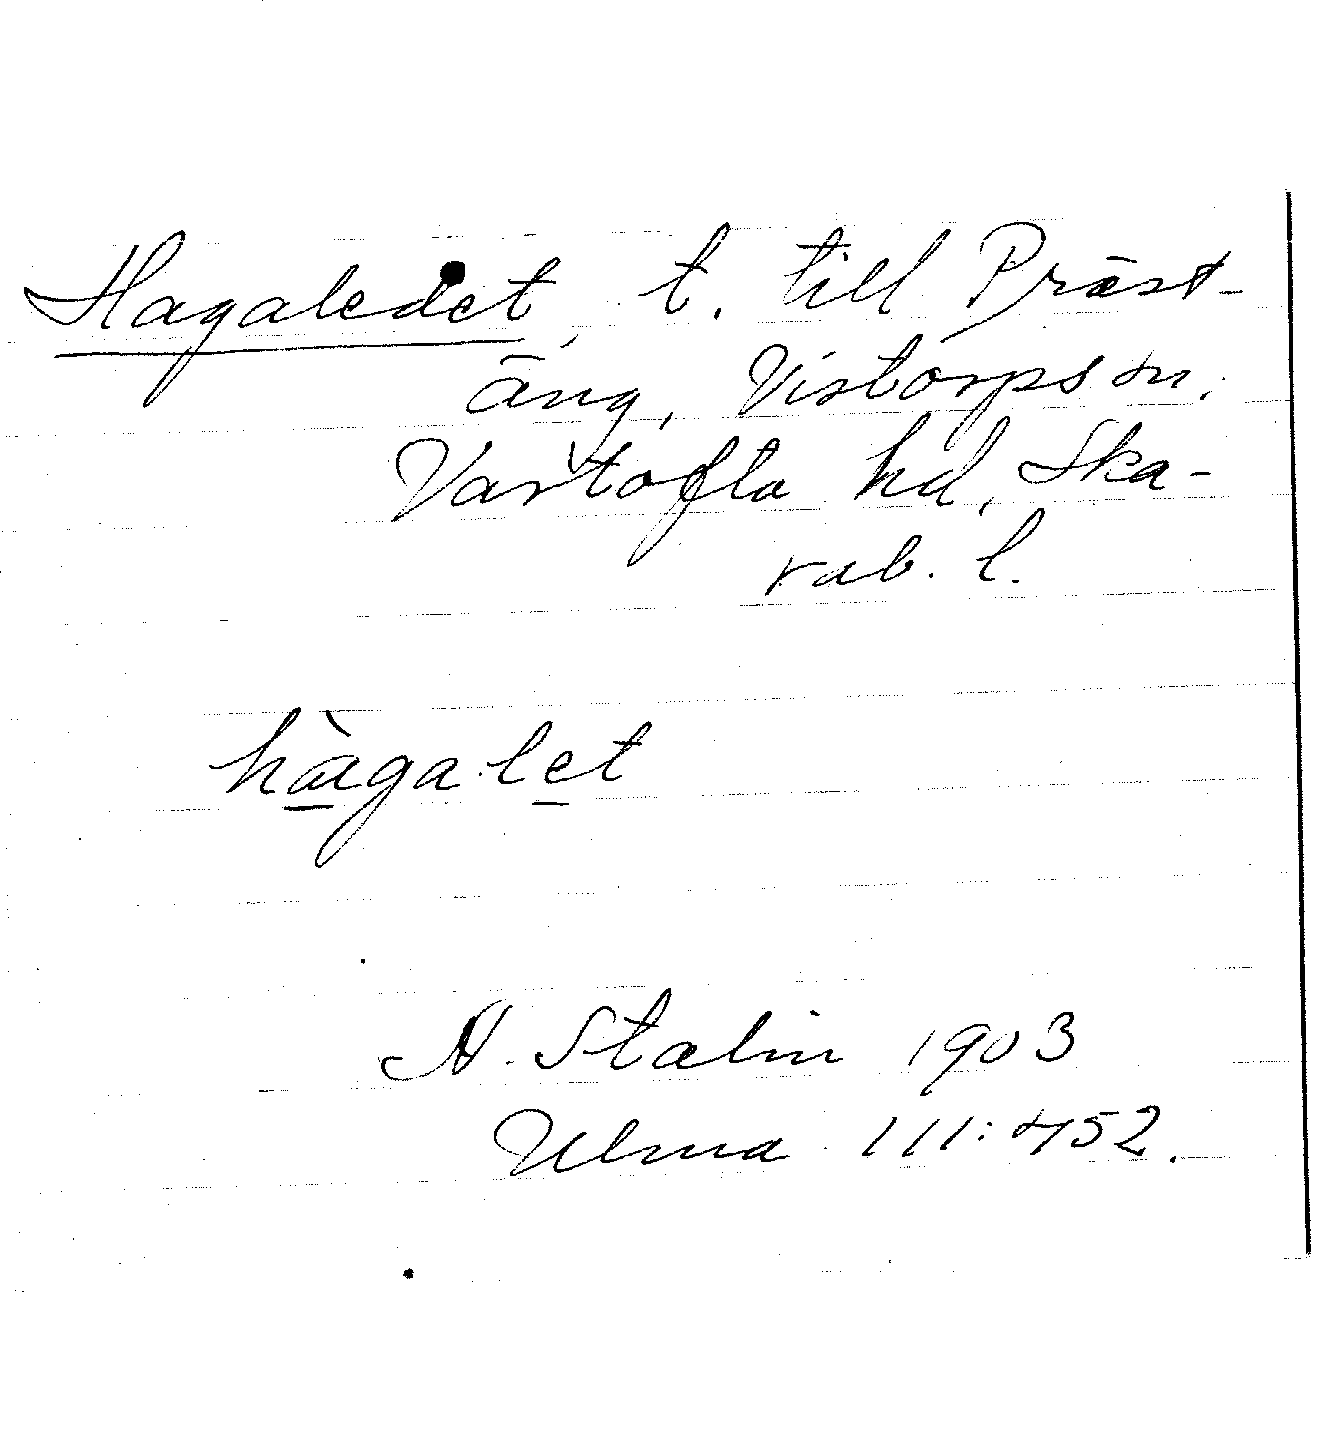 Hagaledet, t. till Präst-
äng, Vistorps sn,
Vartofta hd, Ska-
rab. l.
hàgalet
H. Stalin 1903
Ulma 111:452.